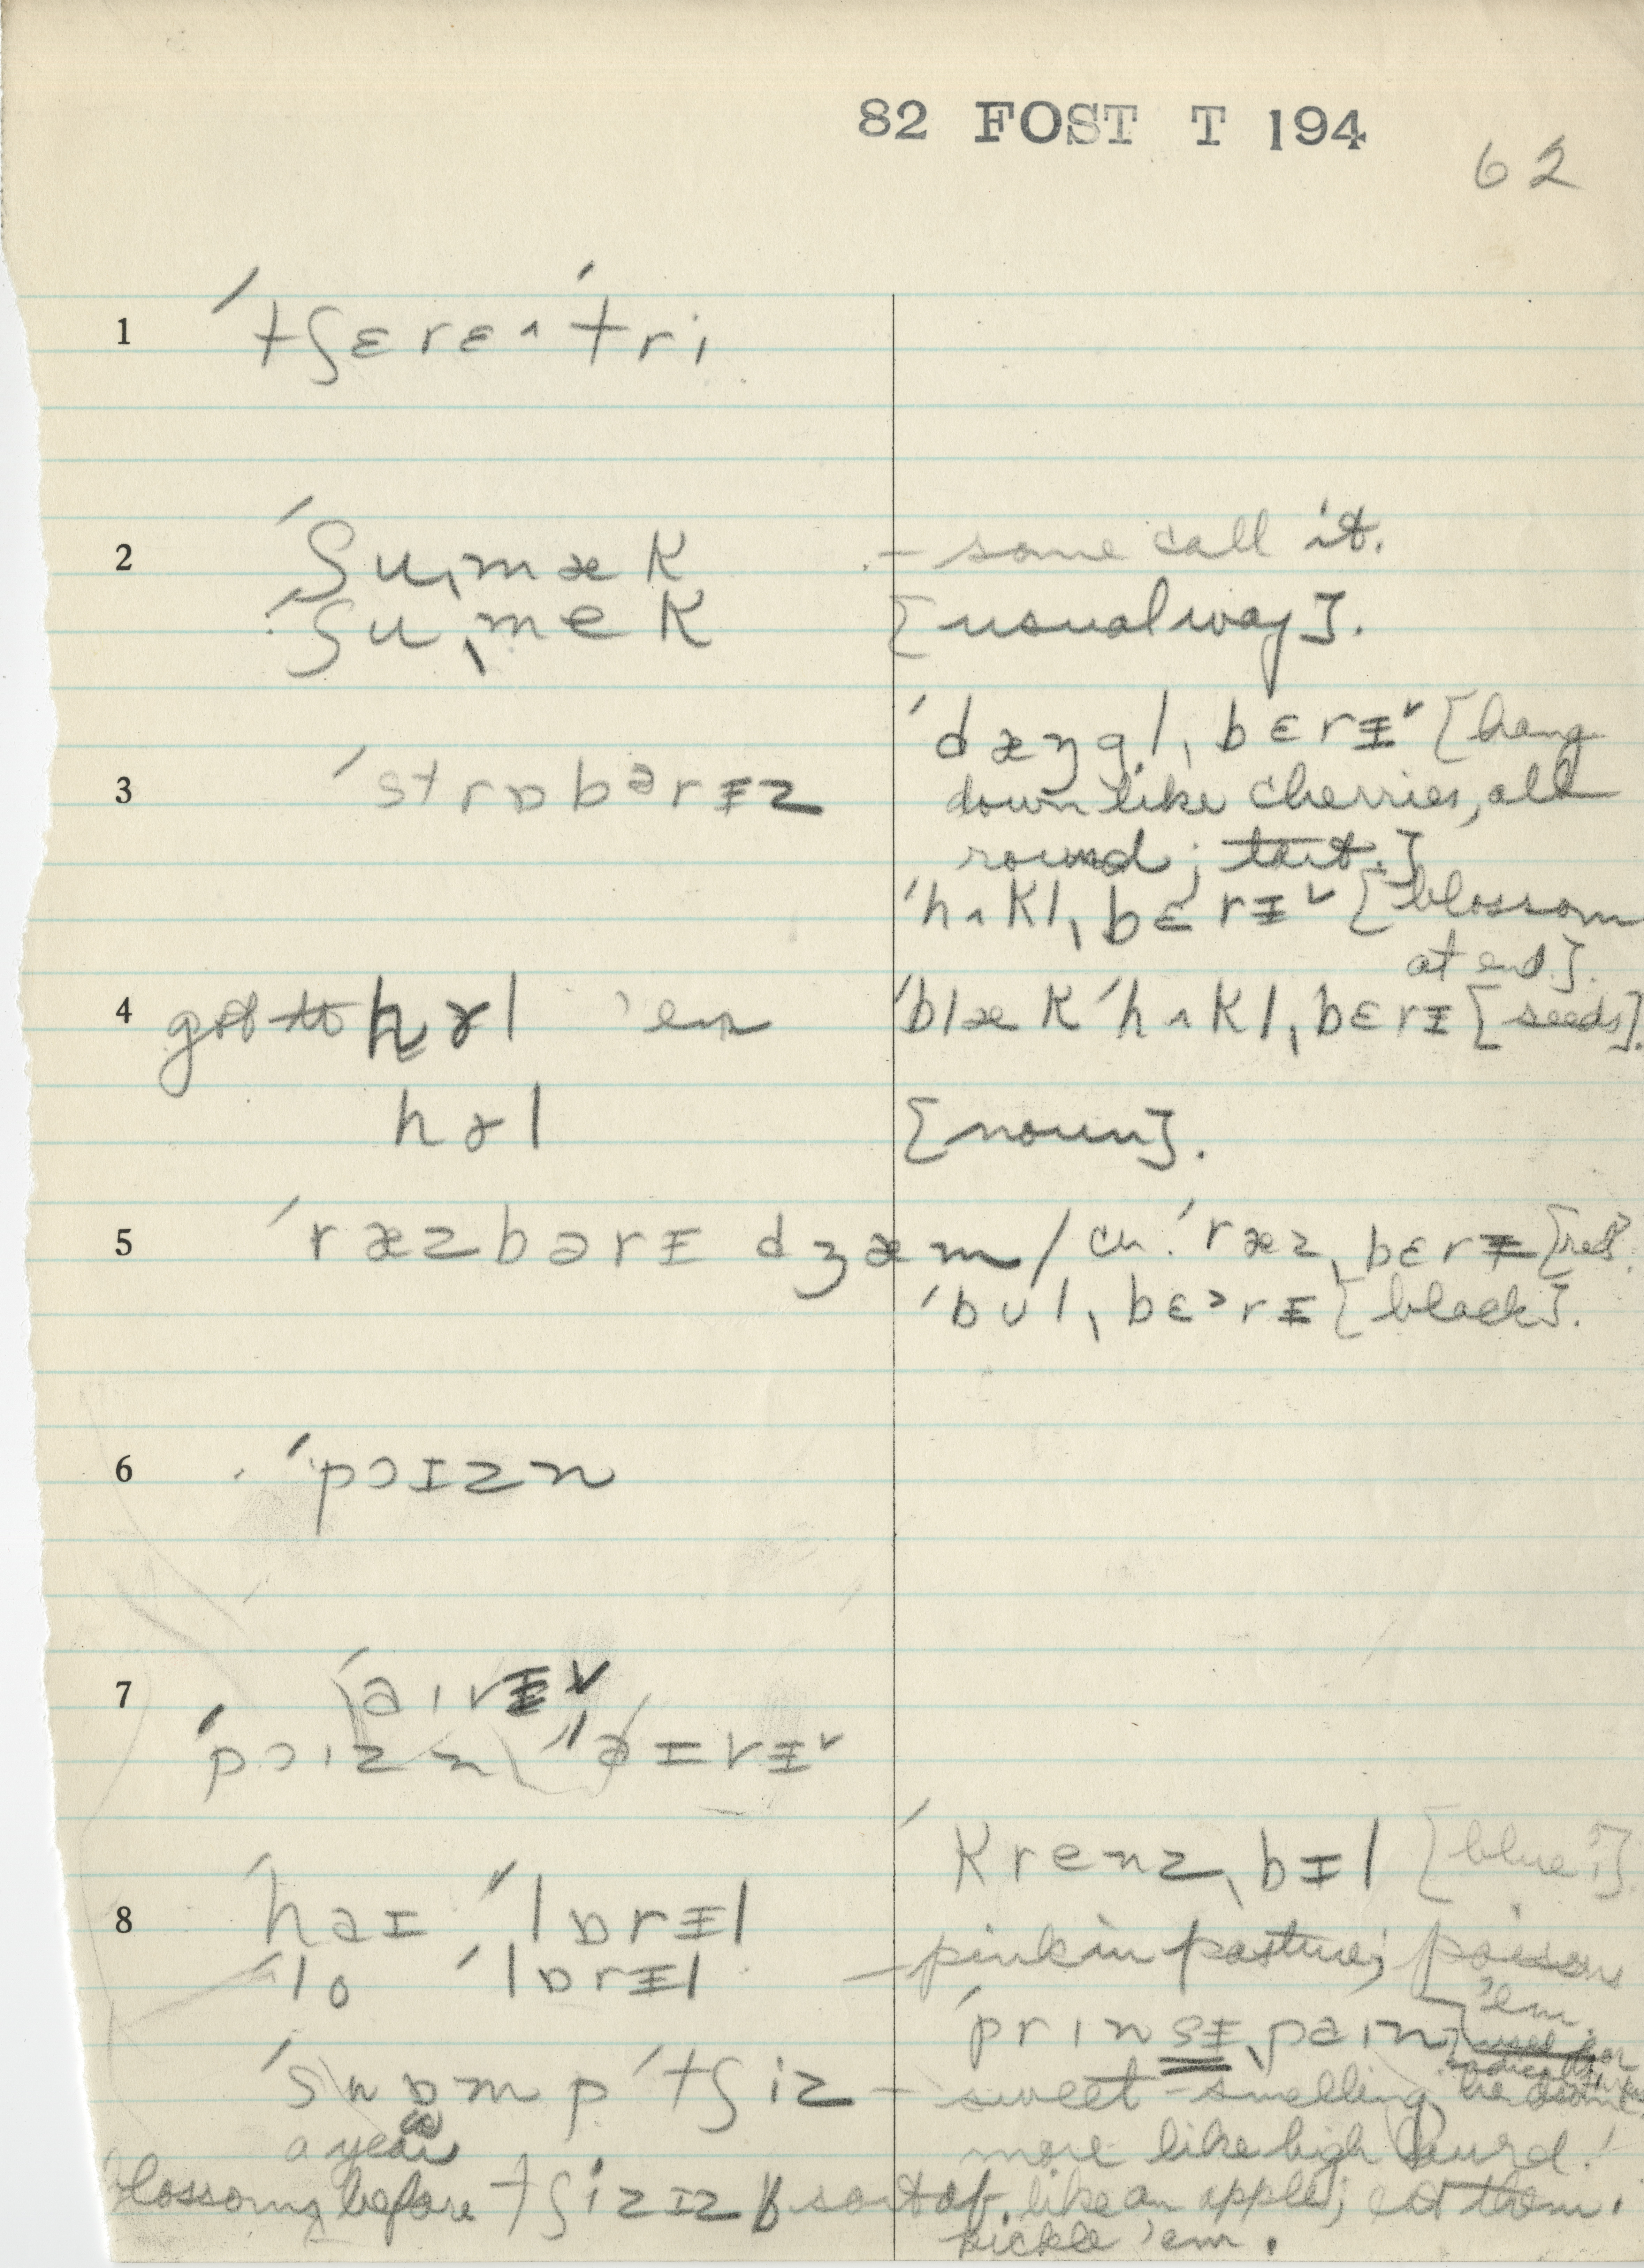 82 FOST T 194
62
1 ˈtʃɛrɛ^ ˈtri
2 ˈʃuˌmæk - some call it.
ˈʃuˌmek [usual way].
ˈdæŋgl̩ˌbɛrɪ˅ [hang
3 ˈstrɒbərɪz down like cherries, all
round; tart.]
ˈhʌklˌbɛrɪ˅ [blossom
at end].
4 got to hɤl 'em ˈblæk ˈhʌklˌbɛrɪ [seeds].
hɤl [noun].
5 ˈræzbərɪ dʒæm / cn. ˈræzˌbɛrɪ [red].
ˈbʊlˌbɛərɪ [black].
6 ˈpɔɪzn
7 ˈaɪvɪ˅
ˈpɔɪzn ˈaɪvɪ˅
ˈkrenzˌbɪl [blue?].
8 ˈhaɪ ˈlɒrɪl
ˈlo ˈlɒrɪl - pink in pasture; poison
'em.
ˈprɪnsɪˌpaɪn [used for
ˈswɒmp ˈtʃiz - sweet-smelling
a year more like high laurel.
blossoms before tʃizɪz sort of like an apple; eat them.
pickle 'em.